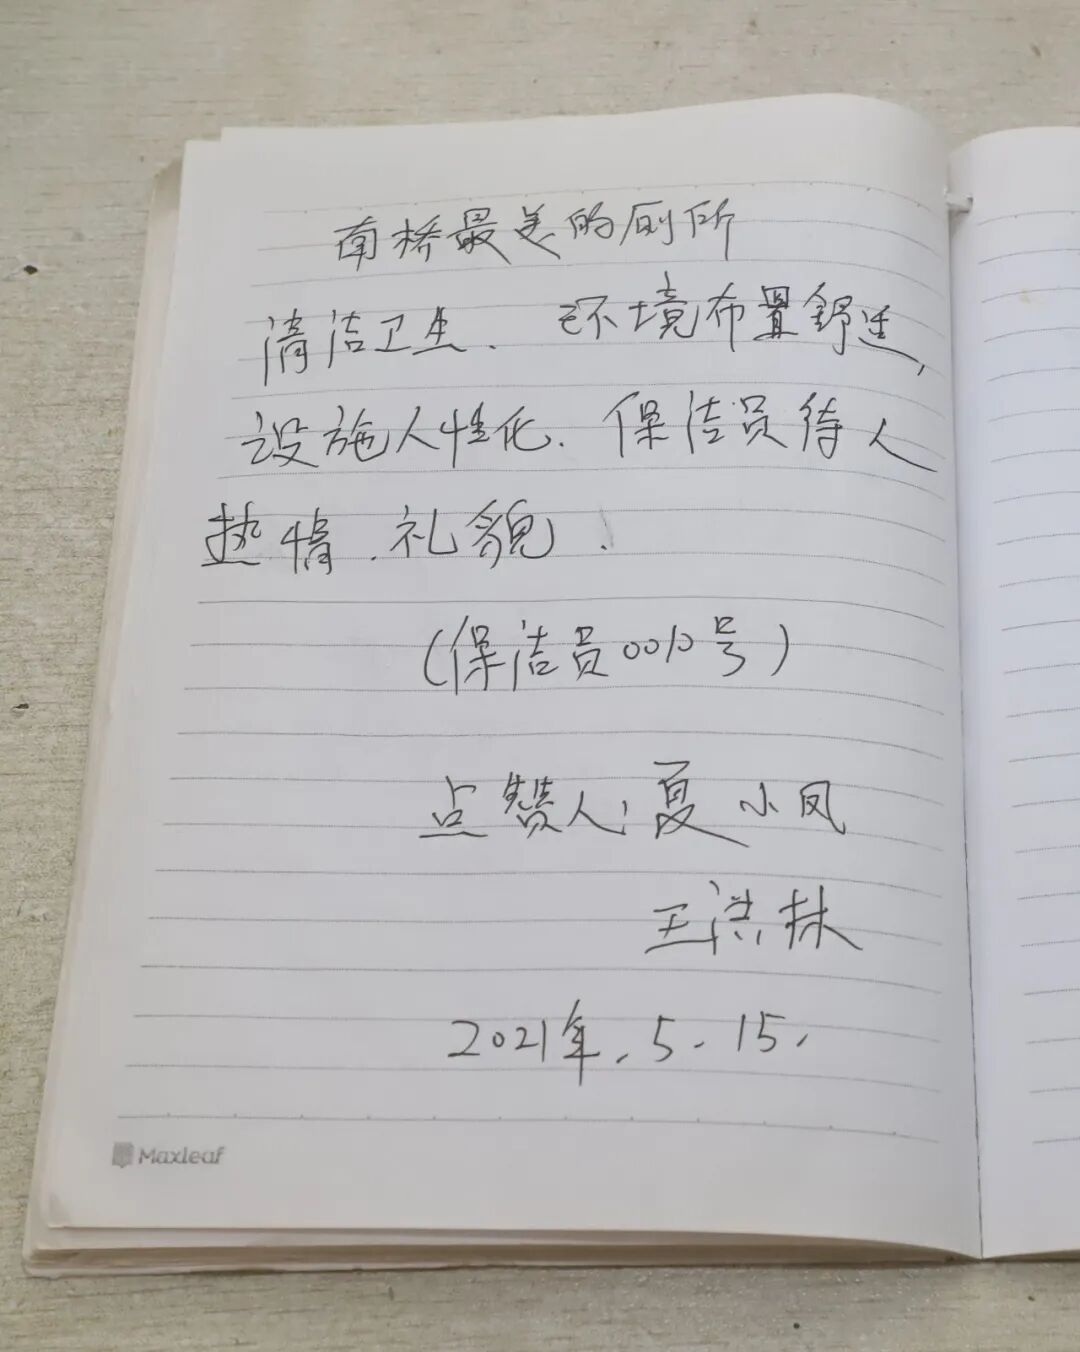 南桥最美的厕所
清洁卫生、环境布置舒适,
设施人性化、保洁员待人
热情、礼貌.
(保洁员0010号)
点赞人:夏小凤
王洪林
2021年.5.15.
Maxleaf